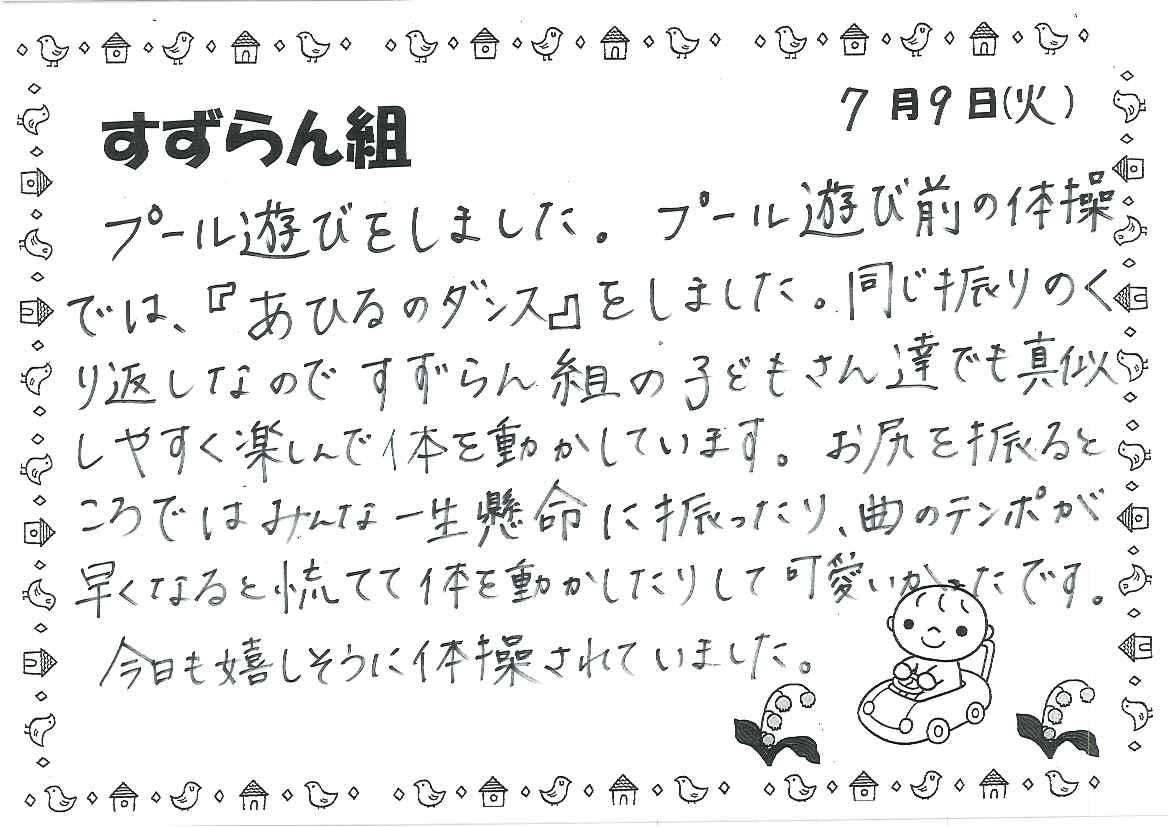 すずらん組
7月9日(火)
プール遊びをしました。プール遊び前の体操
では、『あひるのダンス』をしました。同じ振りのく
り返しなのですずらん組の子どもさん達でも真似
しやすく楽しんで体を動かしています。お尻を振ると
ころではみんな一生懸命に振ったり、曲のテンポが
早くなると慌てて体を動かしたりして可愛いかったです。
今日も嬉しそうに体操されていました。